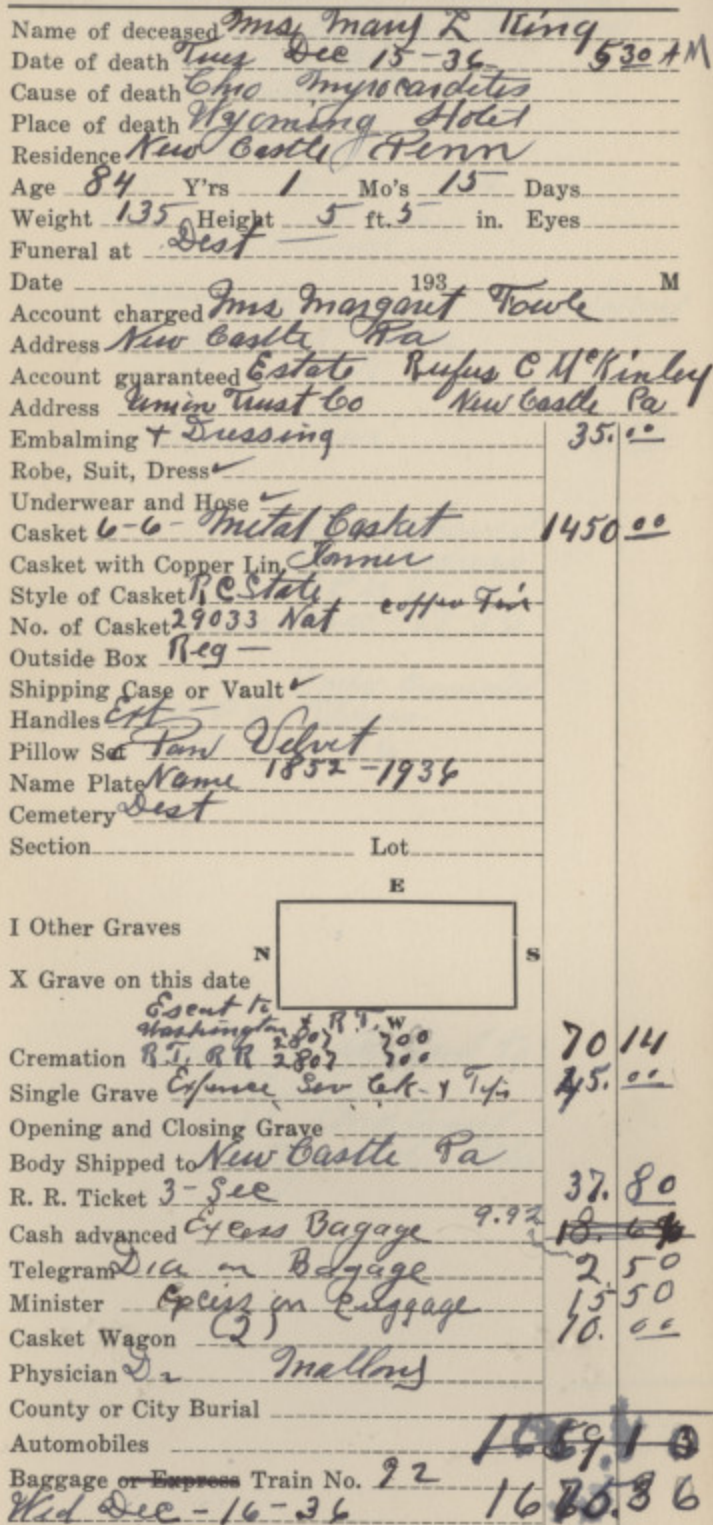 Name of deceased Mrs Mary L King
Date of death Tues Dec 15-36 5 30 AM
Cause of death Chro Myrocardites
Place of death Wyoming Hotel
Residence New Castle Penn
Age 84 Y'rs 1 Mo's 15 Days
Weight 135 Height 5 ft. 5 in. Eyes
Funeral at Dest —
Date 193 M
Account charged Mrs Margaret Towle
Address New Castle Pa
Account guaranteed Estate Rufus C McKinley
Address Union Trust Co New Castle Pa
Embalming + Dressing 35.00
Robe, Suit, Dress ✓
Underwear and Hose ✓
Casket 6-6- Metal Casket 1450 00
Casket with Copper Lin Inner
Style of Casket R C State
No. of Casket 29033 Nat
Outside Box Reg —
Shipping Case or Vault ✓
Handles Ext —
Pillow Set Pan Velvet
Name Plate Name 1852-1936
Cemetery Dest
Section Lot
E
I Other Graves
N S
X Grave on this date
Escort to
Washington + R.T. W
2807 700
Cremation R.T. RR 2807 700 70 14
Single Grave Expence 45.00
Opening and Closing Grave
Body Shipped to New Castle Pa
R. R. Ticket 3-Sec 37.80
Cash advanced Excess Bagage 9.92
Telegram on Bagage 2 50
Minister Excess on Luggage 15 50
Casket Wagon (2) 10.00
Physician Dr Mallory
County or City Burial
Automobiles 1659.13
Baggage or Express Train No. 92
Wed Dec-16-36